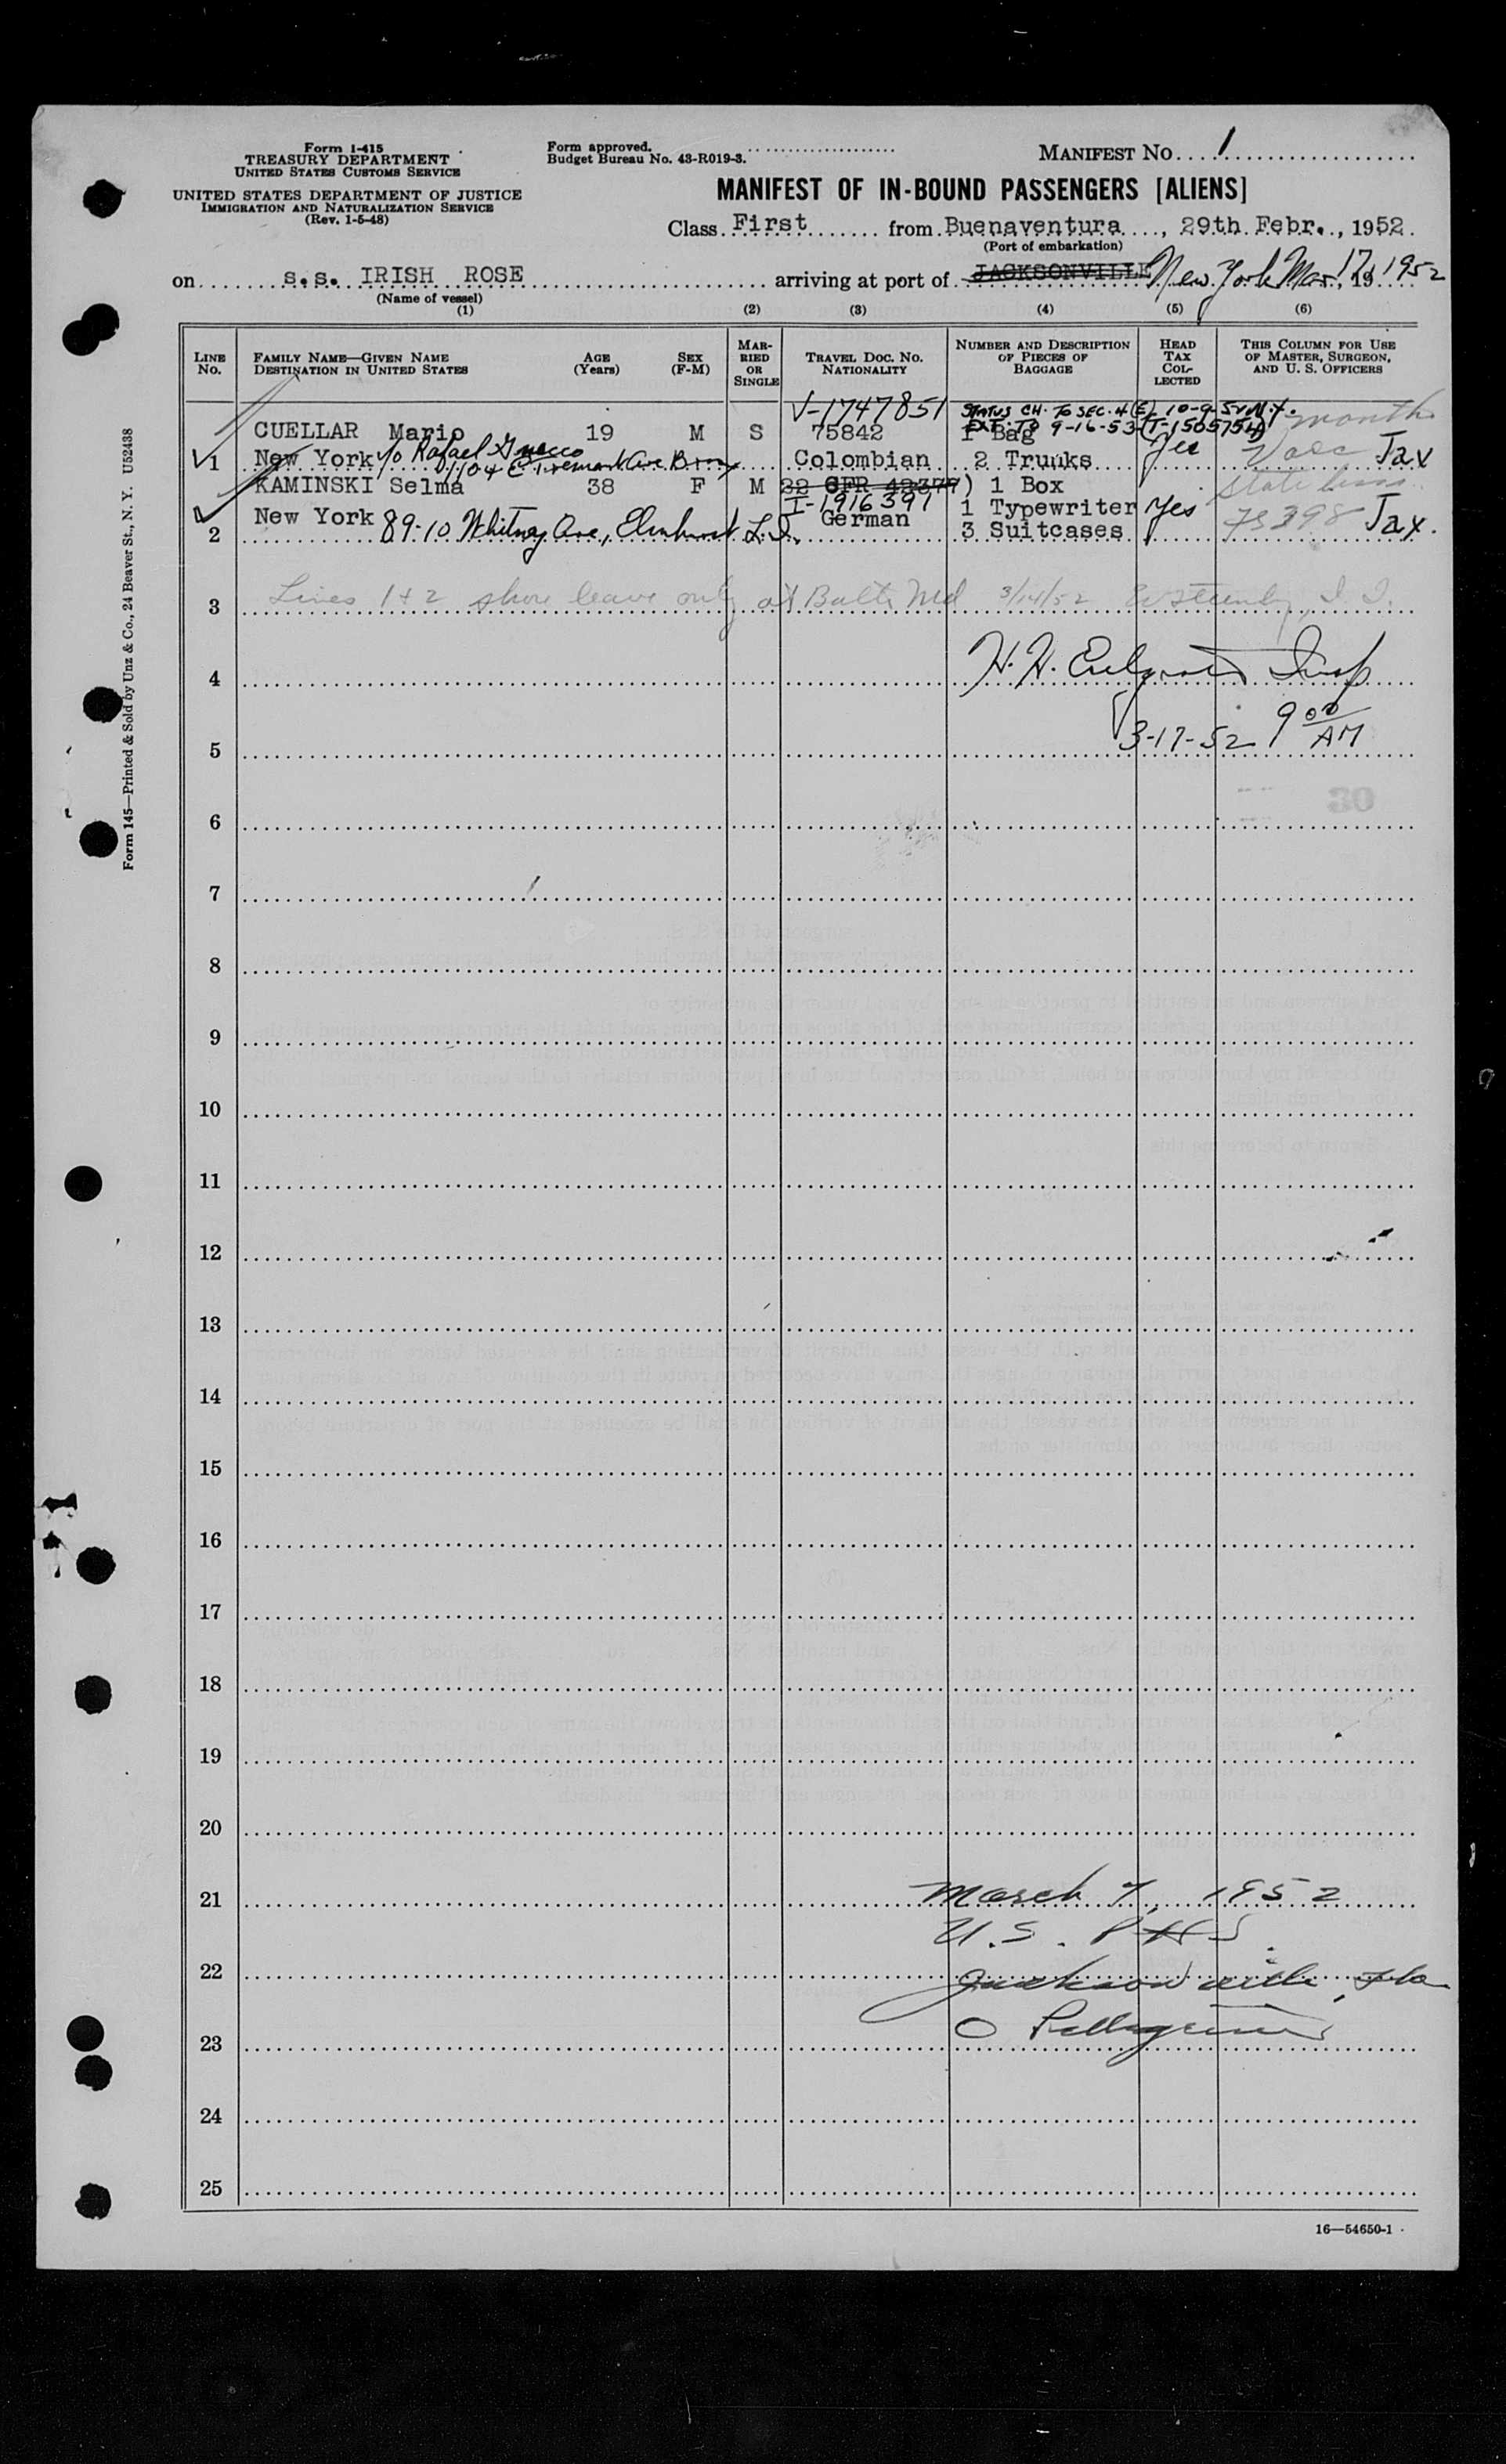 Form I-415
TREASURY DEPARTMENT
UNITED STATES CUSTOMS SERVICE
UNITED STATES DEPARTMENT OF JUSTICE
IMMIGRATION AND NATURALIZATION SERVICE
(Rev. 1-5-48)
Form approved.
Budget Bureau No. 43-R019-3.
MANIFEST NO. 1
MANIFEST OF IN-BOUND PASSENGERS [ALIENS]
Class First from Buenaventura, 29th Febr., 1952.
(Port of embarkation)
on s.s. IRISH ROSE arriving at port of JACKSONVILLE New York Mar. 17, 19 1952
(Name of vessel)
(1) (2) (3) (4) (5) (6)
LINE NO.
FAMILY NAME—GIVEN NAME
DESTINATION IN UNITED STATES
AGE
(Years)
SEX
(F-M)
MARRIED OR SINGLE
TRAVEL DOC. NO.
NATIONALITY
NUMBER AND DESCRIPTION OF PIECES OF BAGGAGE
HEAD TAX COLLECTED
THIS COLUMN FOR USE OF MASTER, SURGEON, AND U. S. OFFICERS
V-1747851 STATUS CH. TO SEC. 4(E) 10-9-52 N.Y.
EXT. TO 9-16-53 (T-1505754)
CUELLAR Mario 19 M S 75842 1 Bag Yes
1 New York c/o Rafael
1104 E Tremont Ave Bronx Colombian 2 Trunks Jax
KAMINSKI Selma 38 F M 22 CFR 42377) 1 Box Stateless
I-1916391
2 New York 89-10 Whitney Ave., Elmhurst L.I. German 1 Typewriter Yes 73398 Jax.
3 Suitcases
3 Lines 1+2 shore leave only at Balto Md 3/14/52
4 H. H. Insp
5 3-17-52 9 00 AM
30
6
7
8
9
10
11
12
13
14
15
16
17
18
19
20
21 March 7, 1952
U.S. PHS
22 Jacksonville, Fla
23
24
25
16—54650-1
Form 145—Printed & Sold by Unz & Co., 24 Beaver St., N. Y. U52438